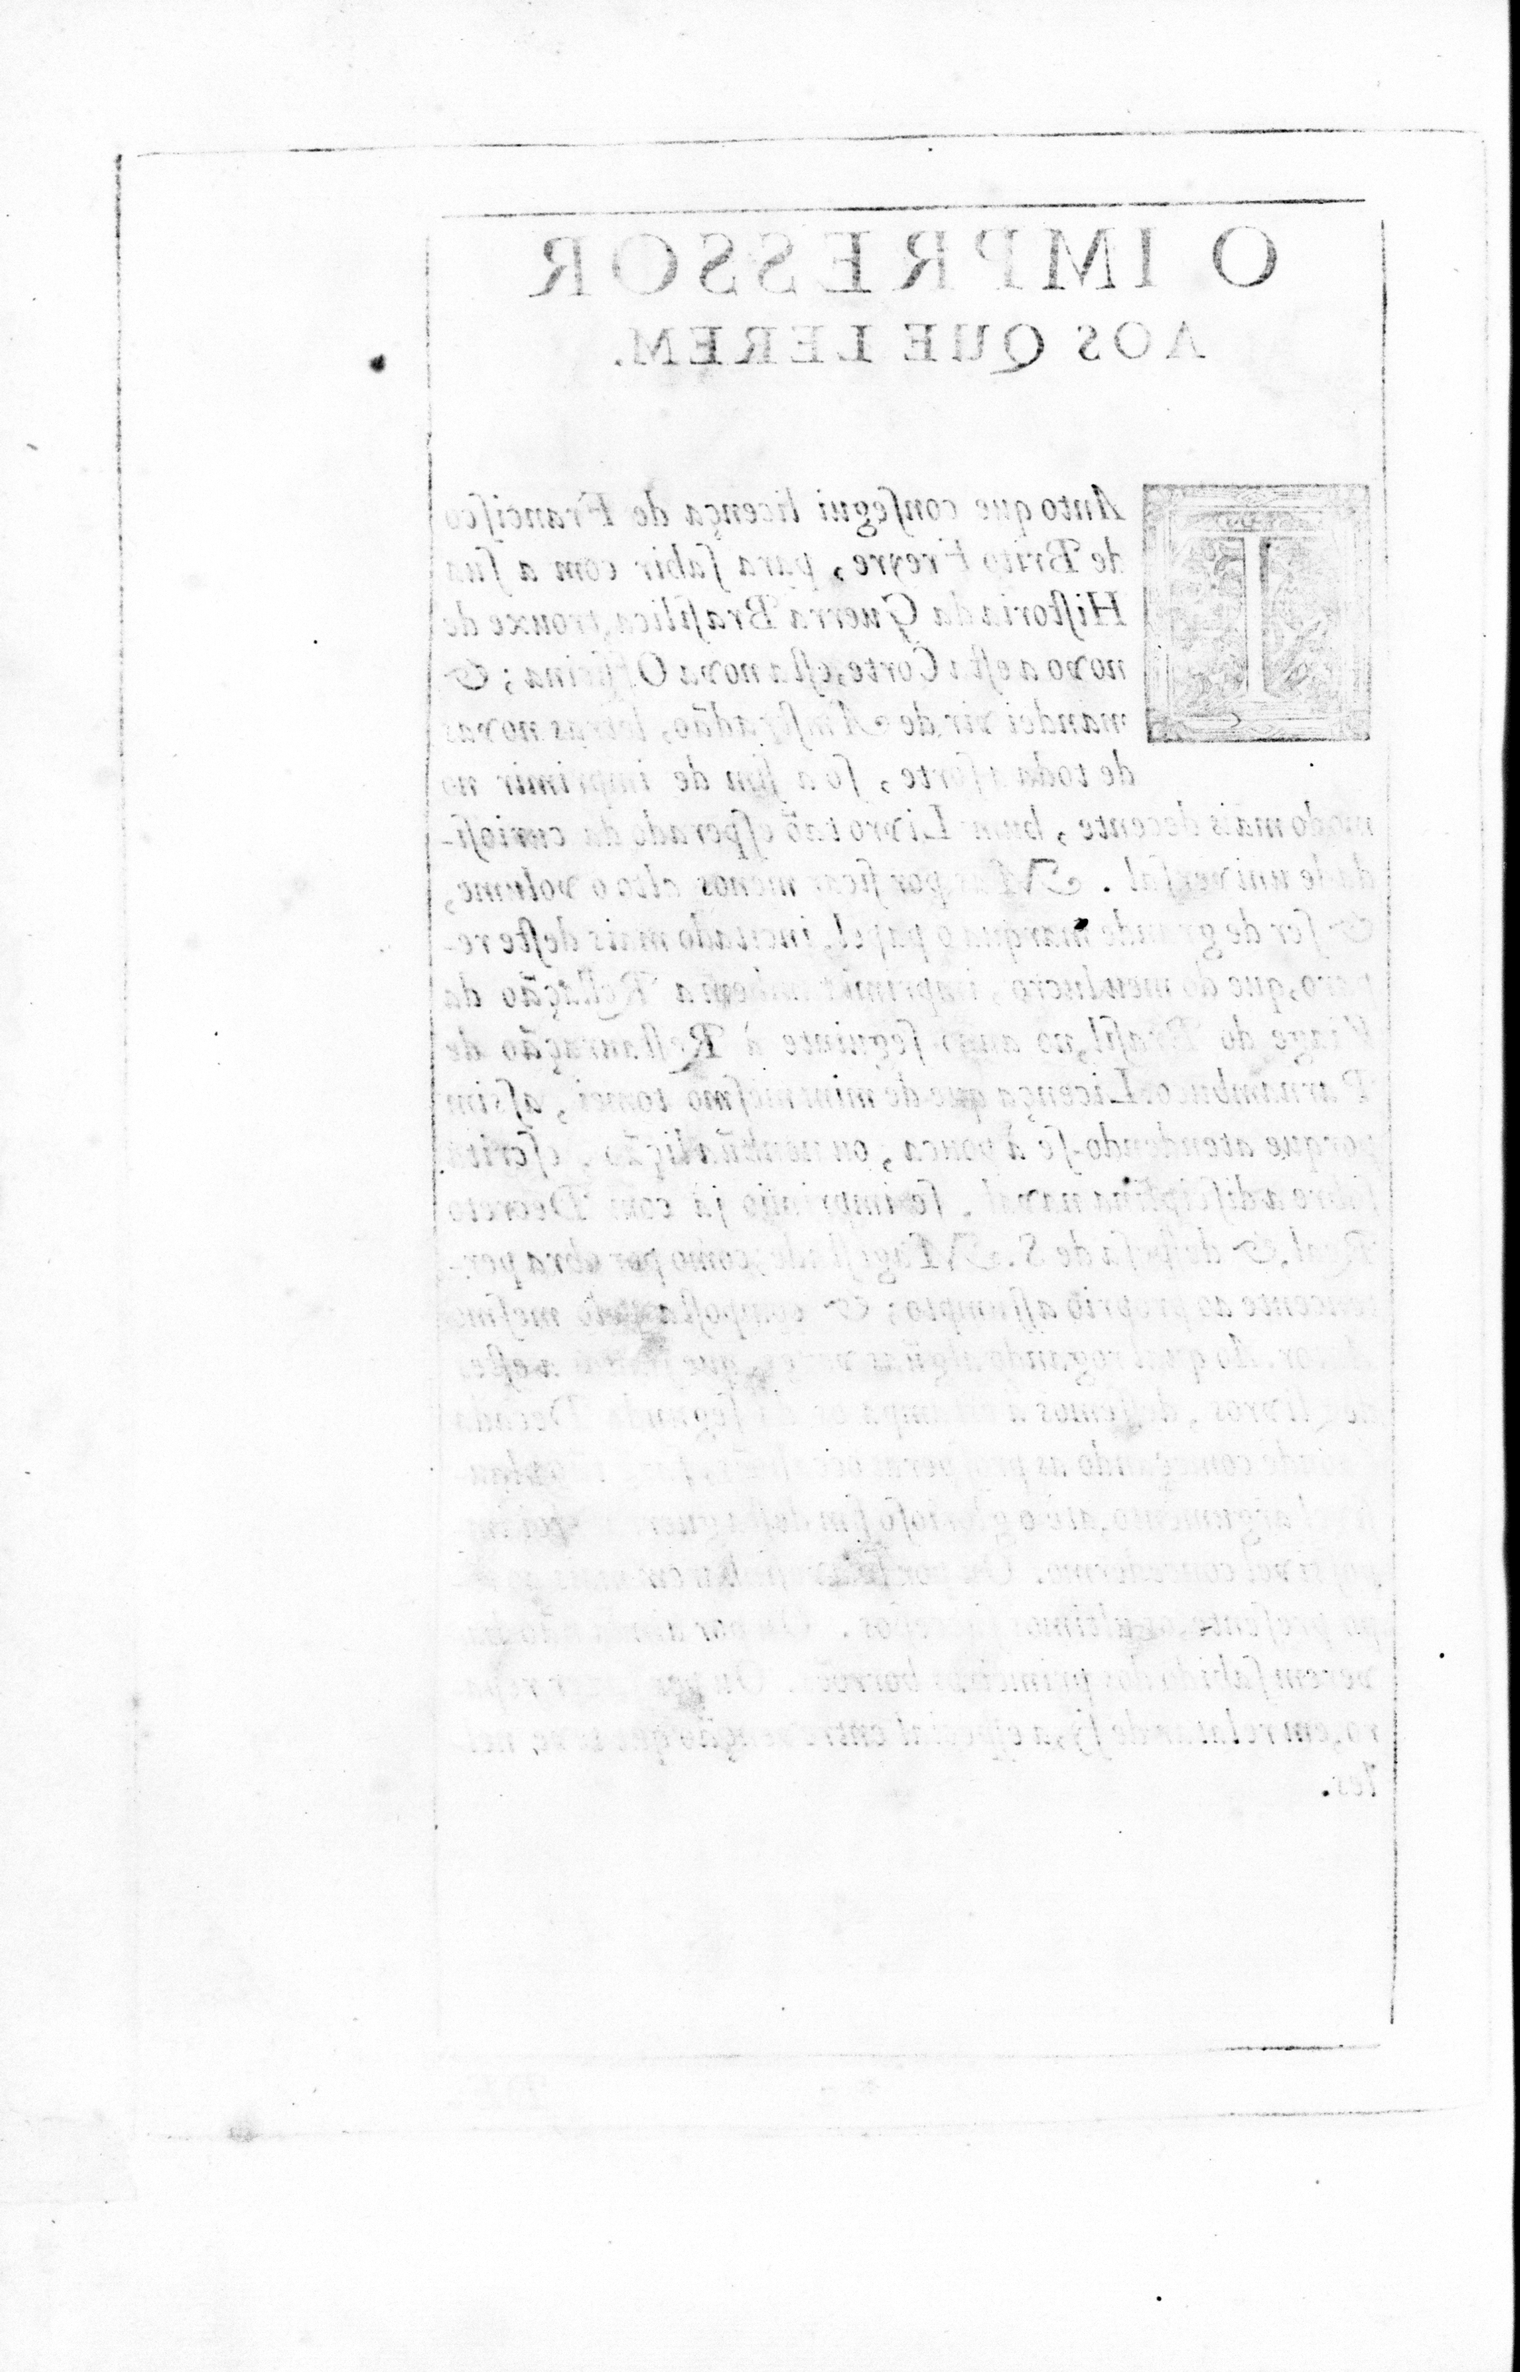 O IMPRESSOR
AOS QUE LEREM.
TAnto que conſegui licença de Franciſco
de Brito Freyre, para ſahir com a ſua
Hiſtoria da Guerra Braſilica, trouxe de
novo a eſta Corte, eſta nova Officina; &
mandei vir de Amſtradão, letras novas
de toda ſorte, ſo a fim de imprimir no
modo mais decente, hum Livro taõ eſperado da curioſi-
dade univerſal. Mas por ficar menos alto o volume,
& ſer de grande marquo o papel, incitado mais deſte re-
paro, que do meu lucro, imprimi tambem a Rellação da
Viage do Braſil, no anno ſeguinte à Reſtauração de
Parnambuco. Licença que de mim meſmo tomei, aſsim
porque atendendo-ſe à pouca, ou nenhũa lição, eſcrita
ſobre a diſciplina naval, ſe imprimio já com Decreto
Real, & deſpeſa de S. Mageſtade; como por obra per-
tencente ao proprio aſſumpto; & compoſta do meſmo
Autor. Ao qual rogando algũas vezes, que a eſtes
dez livros, deſſemos a eſtampa os da ſegunda Decada
começando as proſperas
argumento, até o glorioſo fim deſta guerra
poſsivel
po preſente, os ultimos ſuceſſos. Ou por ainda não ha-
verem ſahido dos primeiros borroẽs. Ou por
ro, em relatar de ſy, a eſpecial entrevenção que teve, nel-
les.